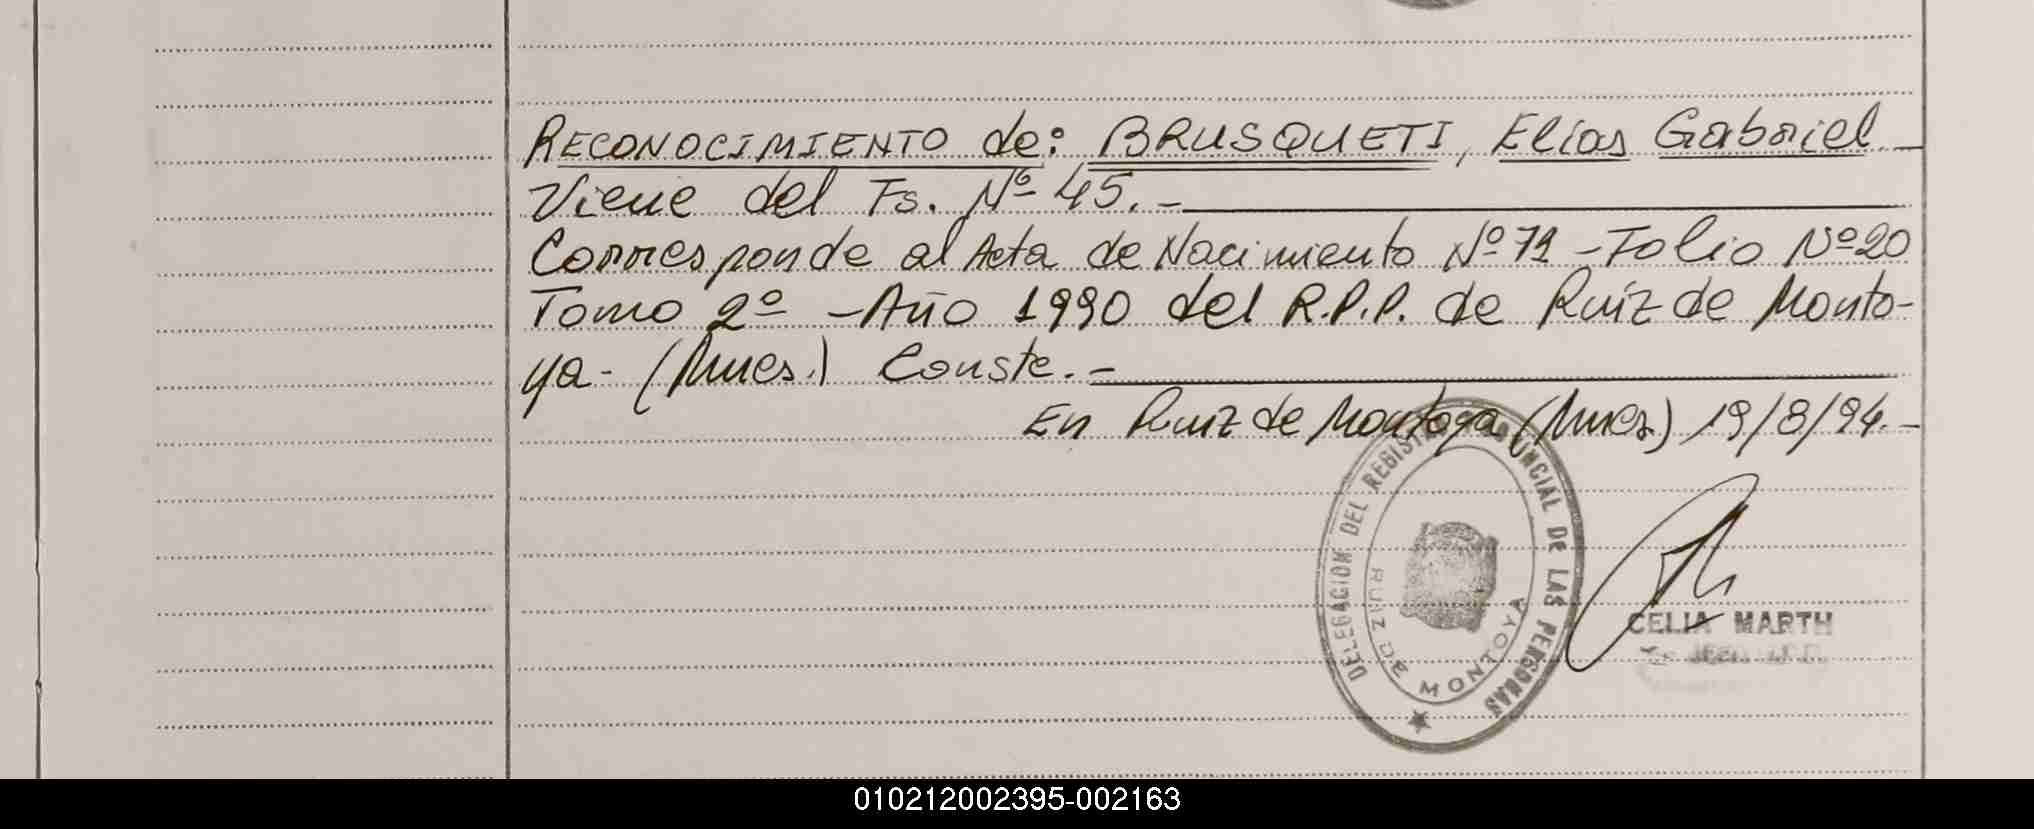 RECONOCIMIENTO de: BRUSQUETI, Elías Gabriel.—
Viene del Fs. Nº 45.-
Corresponde al Acta de Nacimiento Nº 71 - Folio Nº 20
Tomo 2º - Año 1990 del R.P.P. de Ruiz de Monto-
ya - (Mnes.) Conste.-
En Ruiz de Montoya (Mnes) 19/8/94.-
DELEGACION DEL REGISTRO PROVINCIAL DE LAS PERSONAS
RUIZ DE MONTOYA
CELIA MARTH
010212002395-002163